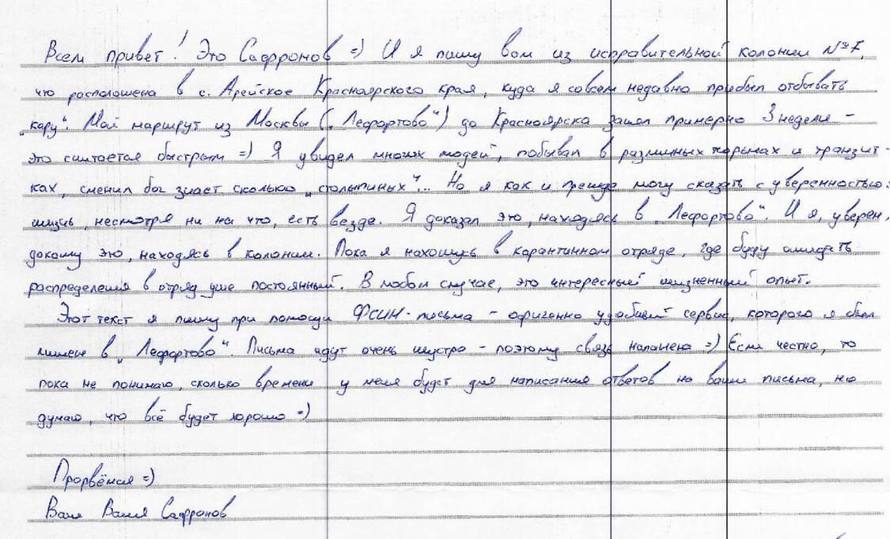 Всем привет! Это Сафронов =) И я пишу вам из исправительной колонии №7,
что расположена в с. Арейское Красноярского края, куда я совсем недавно прибыл отбывать
„кару". Мой маршрут из Москвы („Лефортово") до Красноярска занял примерно 3 недели -
это считается быстрым =) Я увидел многих людей, побывал в различных тюрьмах и транзит-
ках, сменил бог знает сколько „столыпиных"... Но я как и прежде могу сказать с уверенностью:
жизнь, несмотря ни на что, есть везде. Я доказал это, находясь в „Лефортово". И я, уверен,
докажу это, находясь в колонии. Пока я нахожусь в карантинном отряде, где буду ожидать
распределения в отряд уже постоянный. В любом случае, это интересный жизненный опыт.
Этот текст я пишу при помощи ФСИН-письма - офигенно удобный сервис, которого я был
лишен в „Лефортово". Письма идут очень шустро - поэтому связь налажена =) Если честно, то
пока не понимаю, сколько времени у меня будет для написания ответов на ваши письма, но
думаю, что всё будет хорошо =)
Прорвёмся =)
Ваш Ваня Сафронов